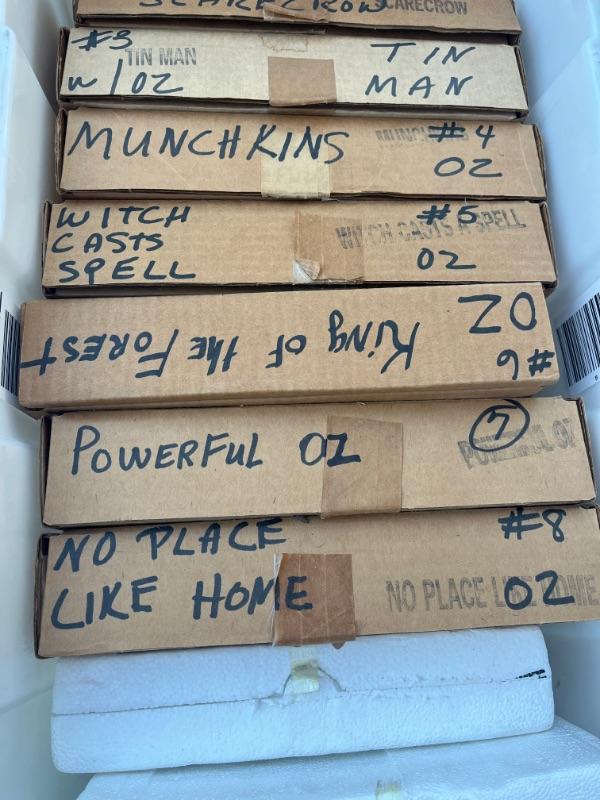 SCARECROW
CARECROW
#3
TIN MAN
TIN
W/OZ
MAN
MUNCHKINS
#4
OZ
WITCH
CASTS
SPELL
WITCH CASTS A SPELL
#5
OZ
King of the Forest
OZ
#6
POWERFUL OZ
7
POWERFUL OZ
NO PLACE
LIKE HOME
#8
NO PLACE LIKE HOME
OZ